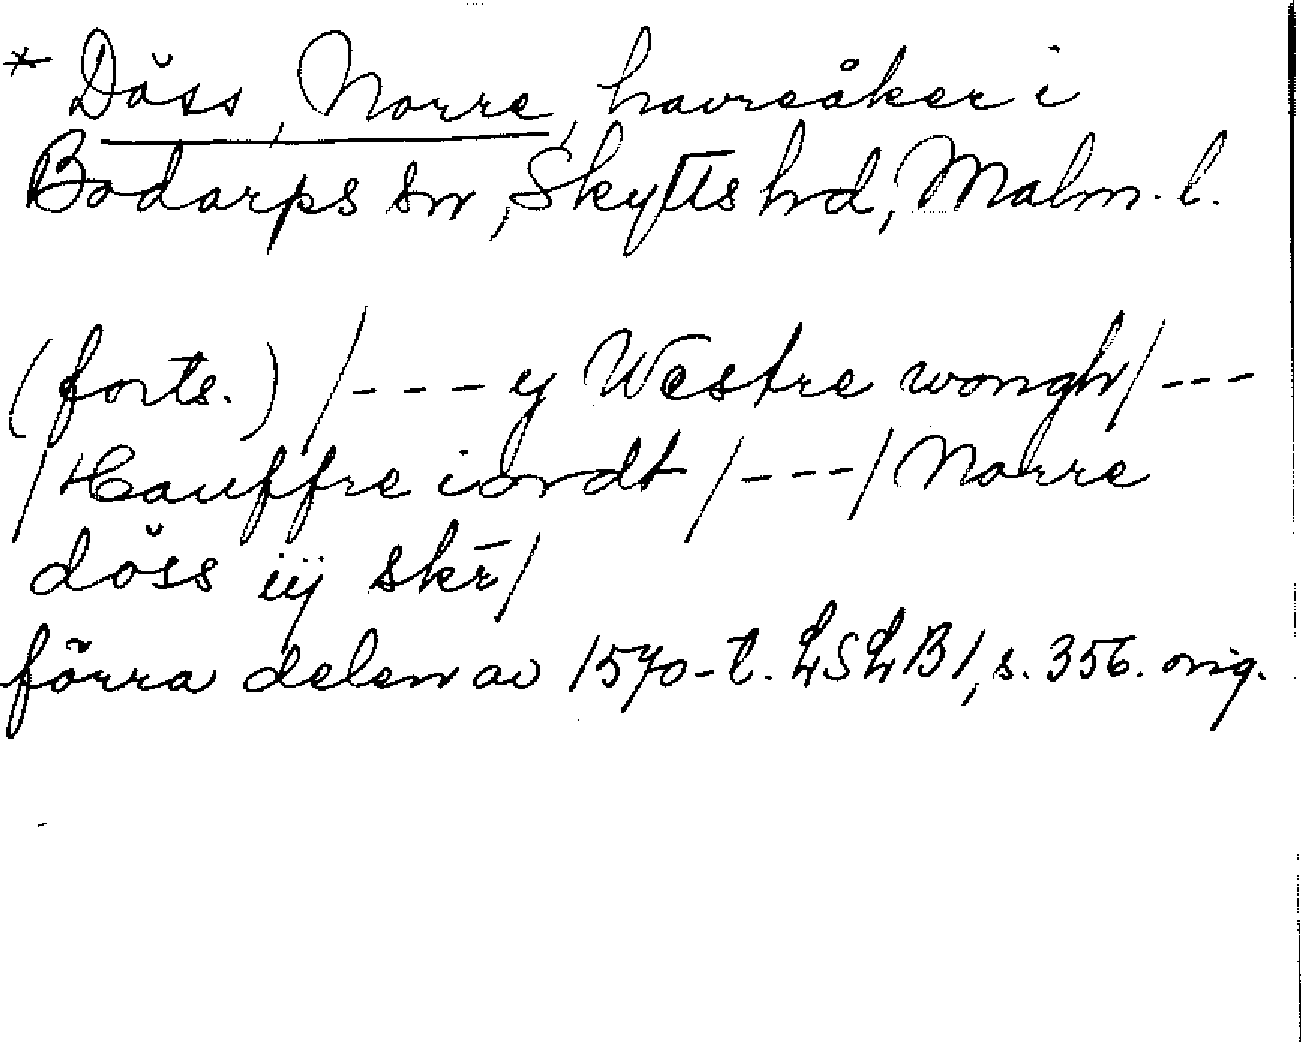 * Döss, Norre, havreåker i
Bodarps sn, Skytts hd, Malm. l.
(forts.) /---y Westre wongh/---
/Hauffre iordt/---/Norre
döss iij skr̄/
förra delen av 1570-t. LSLB1, s. 356. orig.